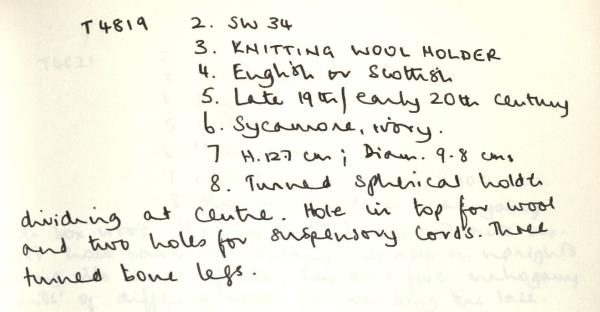 T4819 2. SW 34
3. KNITTING WOOL HOLDER
4. English or Scottish
5. Late 19th/early 20th century
6. Sycamore, ivory.
7 H. 12.7 cm; Diam. 9.8 cms
8. Turned spherical holder
dividing at centre. Hole in top for wool
and two holes for suspensory cords. Three
turned bone legs.